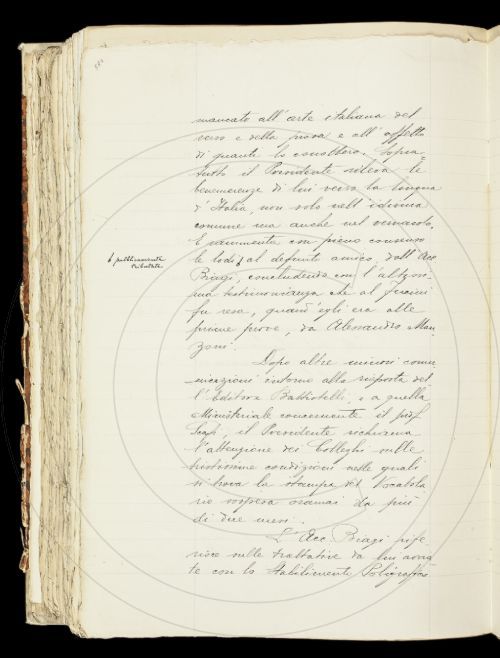 mancato all'arte italiana del
verso e della prosa e all'affetto
di quanti lo conobbero. Sopra-
tutto il Presidente rileva le
benemerenze di lui verso la lingua
d'Italia, non solo nell'idioma
comune ma anche nel vernacolo.
E rammenta con pieno consenso
le lodi al defunto amico, dall'Acc.
pubblicamente
tributate
Biagi, concludendo con l'altissi-
ma testimonianza che al Fucini
fu resa, quand'egli era alle
prime prove, da Alessandro Man-
zoni.
Dopo altre minori comu-
nicazioni intorno alla risposta del
l'Editore Battistelli, e a quella
Ministeriale concernente il prof.
il Presidente richiama
l'attenzione dei Colleghi sulle
tristissime condizioni nelle quali
si trova la stampa del Vocabola
rio sospesa oramai da più
di due mesi.
L'Acc. Biagi rife
risce sulle trattative da lui avvia
te con lo Stabilimento Poligrafico